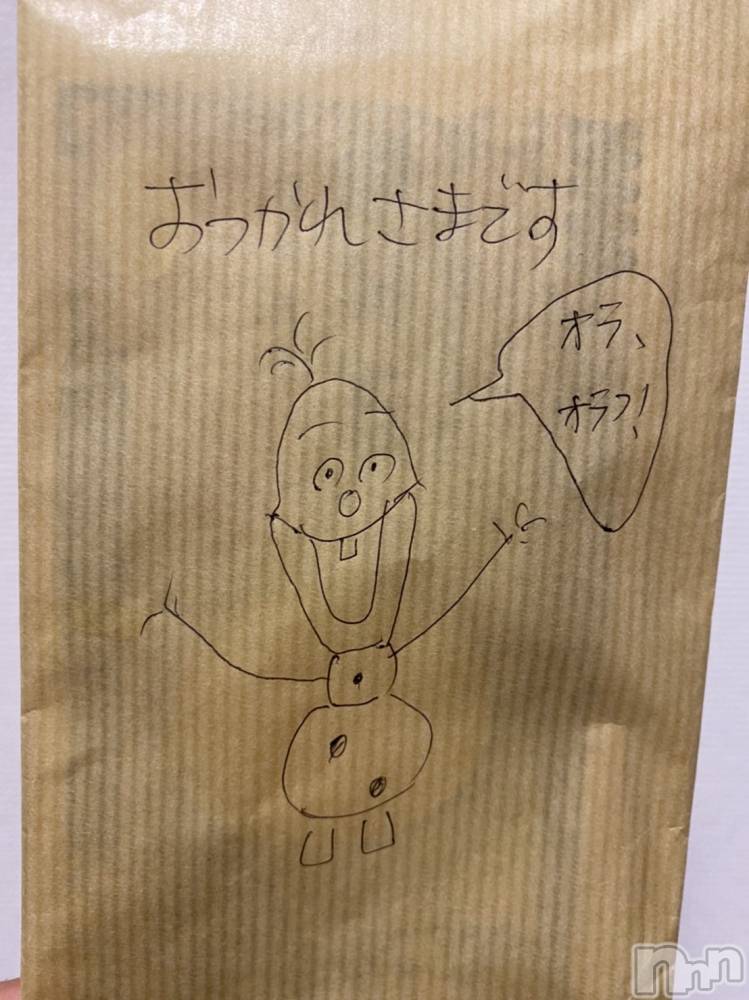 おつかれさまです
オラ、
オラフ!
nnn